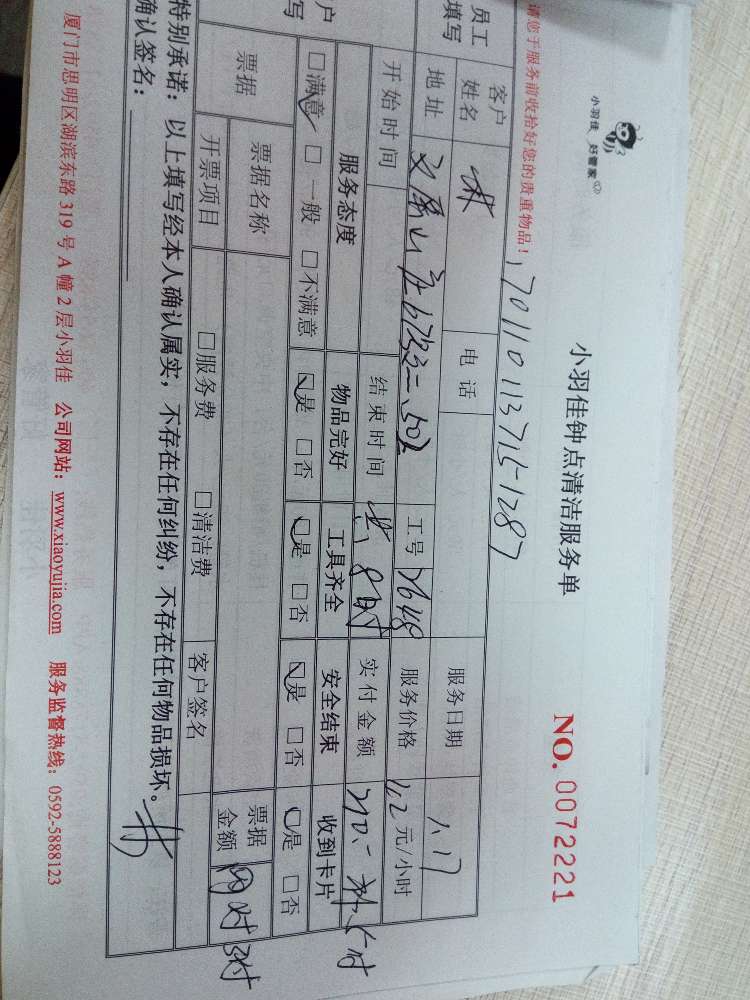 小羽佳 好管家
小羽佳钟点清洁服务单
NO. 0072221
请您于服务前收拾好您的贵重物品！
1701101137151287
员工填写
客户姓名 林 电话 服务日期 1.17
地址 工号 7648 服务价格 元/小时
开始时间 结束时间 共8时 实付金额
客户填写
服务态度 物品完好 工具齐全 安全结束 收到卡片
☑满意 □一般 □不满意 ☑是 □否 ☑是 □否 ☑是 □否 ☑是 □否
票据 票据名称 票据金额
开票项目 □服务费 □清洁费 客户签名
特别承诺：以上填写经本人确认属实，不存在任何纠纷，不存在任何物品损坏。
确认签名：
厦门市思明区湖滨东路 319 号 A 幢 2 层小羽佳 公司网站：www.xiaoyujia.com 服务监督热线：0592-5888123